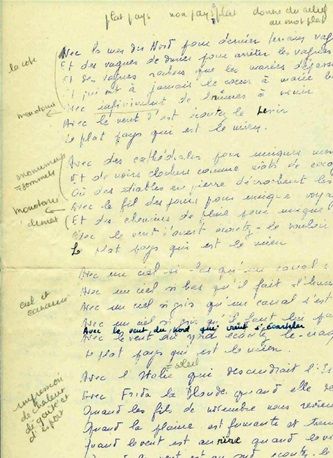 plat pays non pays plat donne du relief
au mot plat
la côte
Avec la mer du Nord pour dernier terrain vague
Et des vagues de dunes pour arrêter les vagues
Et de vagues rochers que les marées dépassent
Et qui ont à jamais le cœur à marée basse
monotonie
Avec infiniment de brumes à venir
Avec le vent d'est écoutez le tenir
Le plat pays qui est le mien.
Avec des cathédrales pour uniques mon
monuments
Et de noirs clochers comme mâts de coca
Où des diables en pierre décrochent les
monotonie
Avec le fil des jours pour unique voy
Et des chemins de pluie pour unique
Avec le vent d'ouest écoutez-le vouloir
Le plat pays qui est le mien
Avec un ciel si bas qu'un canal s
Avec un ciel si bas qu'il fait l'hum
ciel et
Avec un ciel si gris qu'un canal s'est
Avec un ciel si gris qu'il faut lui pa
Avec le vent du nord qui vient s'écarteler
Avec le vent du nord écoutez-le craq
Le plat pays qui est le mien.
Avec l'Italie qui descendrait l'Es
Avec Frida la Blonde quand elle de
impression
de chaleur
de
et
Quand les fils de novembre nous revien
Quand la plaine est fumante et trem
Quand le vent est au rire quand le v
Quand le vent est au sud écoutez-le